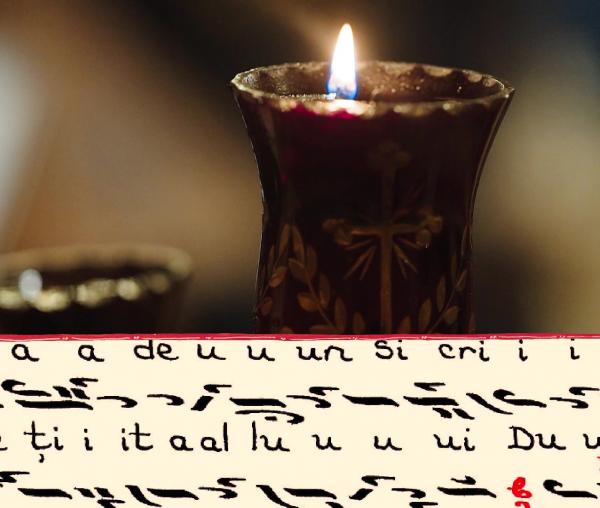 a a de u u un Si cri i i
ți i it a al lu u u ui Du